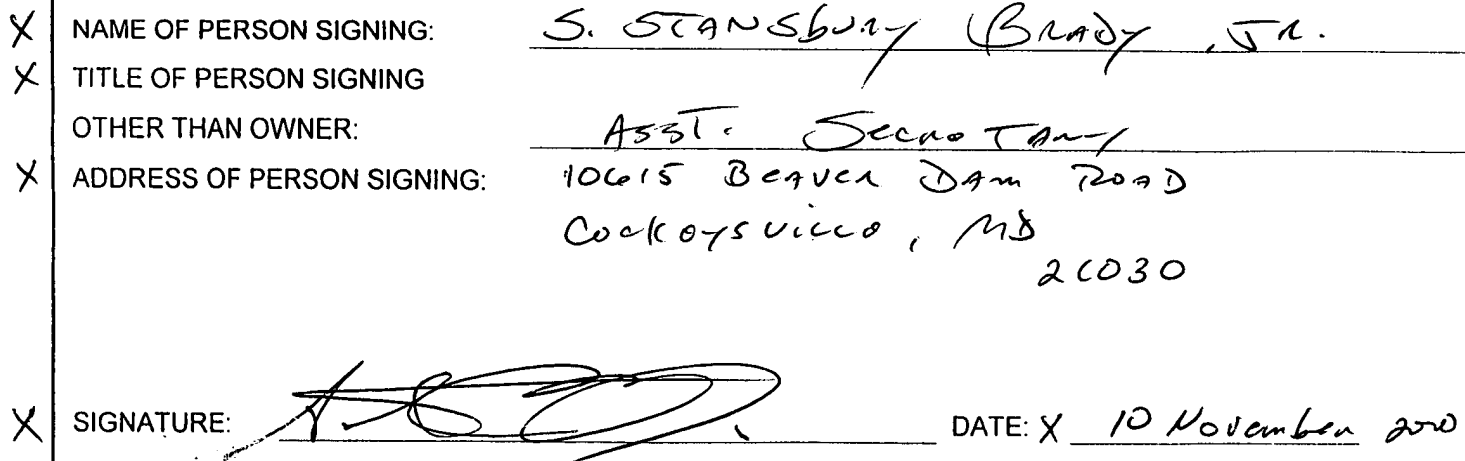 X NAME OF PERSON SIGNING: S. STANSbury BRADy, JR.
X TITLE OF PERSON SIGNING
OTHER THAN OWNER: ASST. Secretary
X ADDRESS OF PERSON SIGNING: 10615 BEAVER DAM ROAD
Cockeysville, MD
21030
X SIGNATURE: DATE: X 10 November 2000